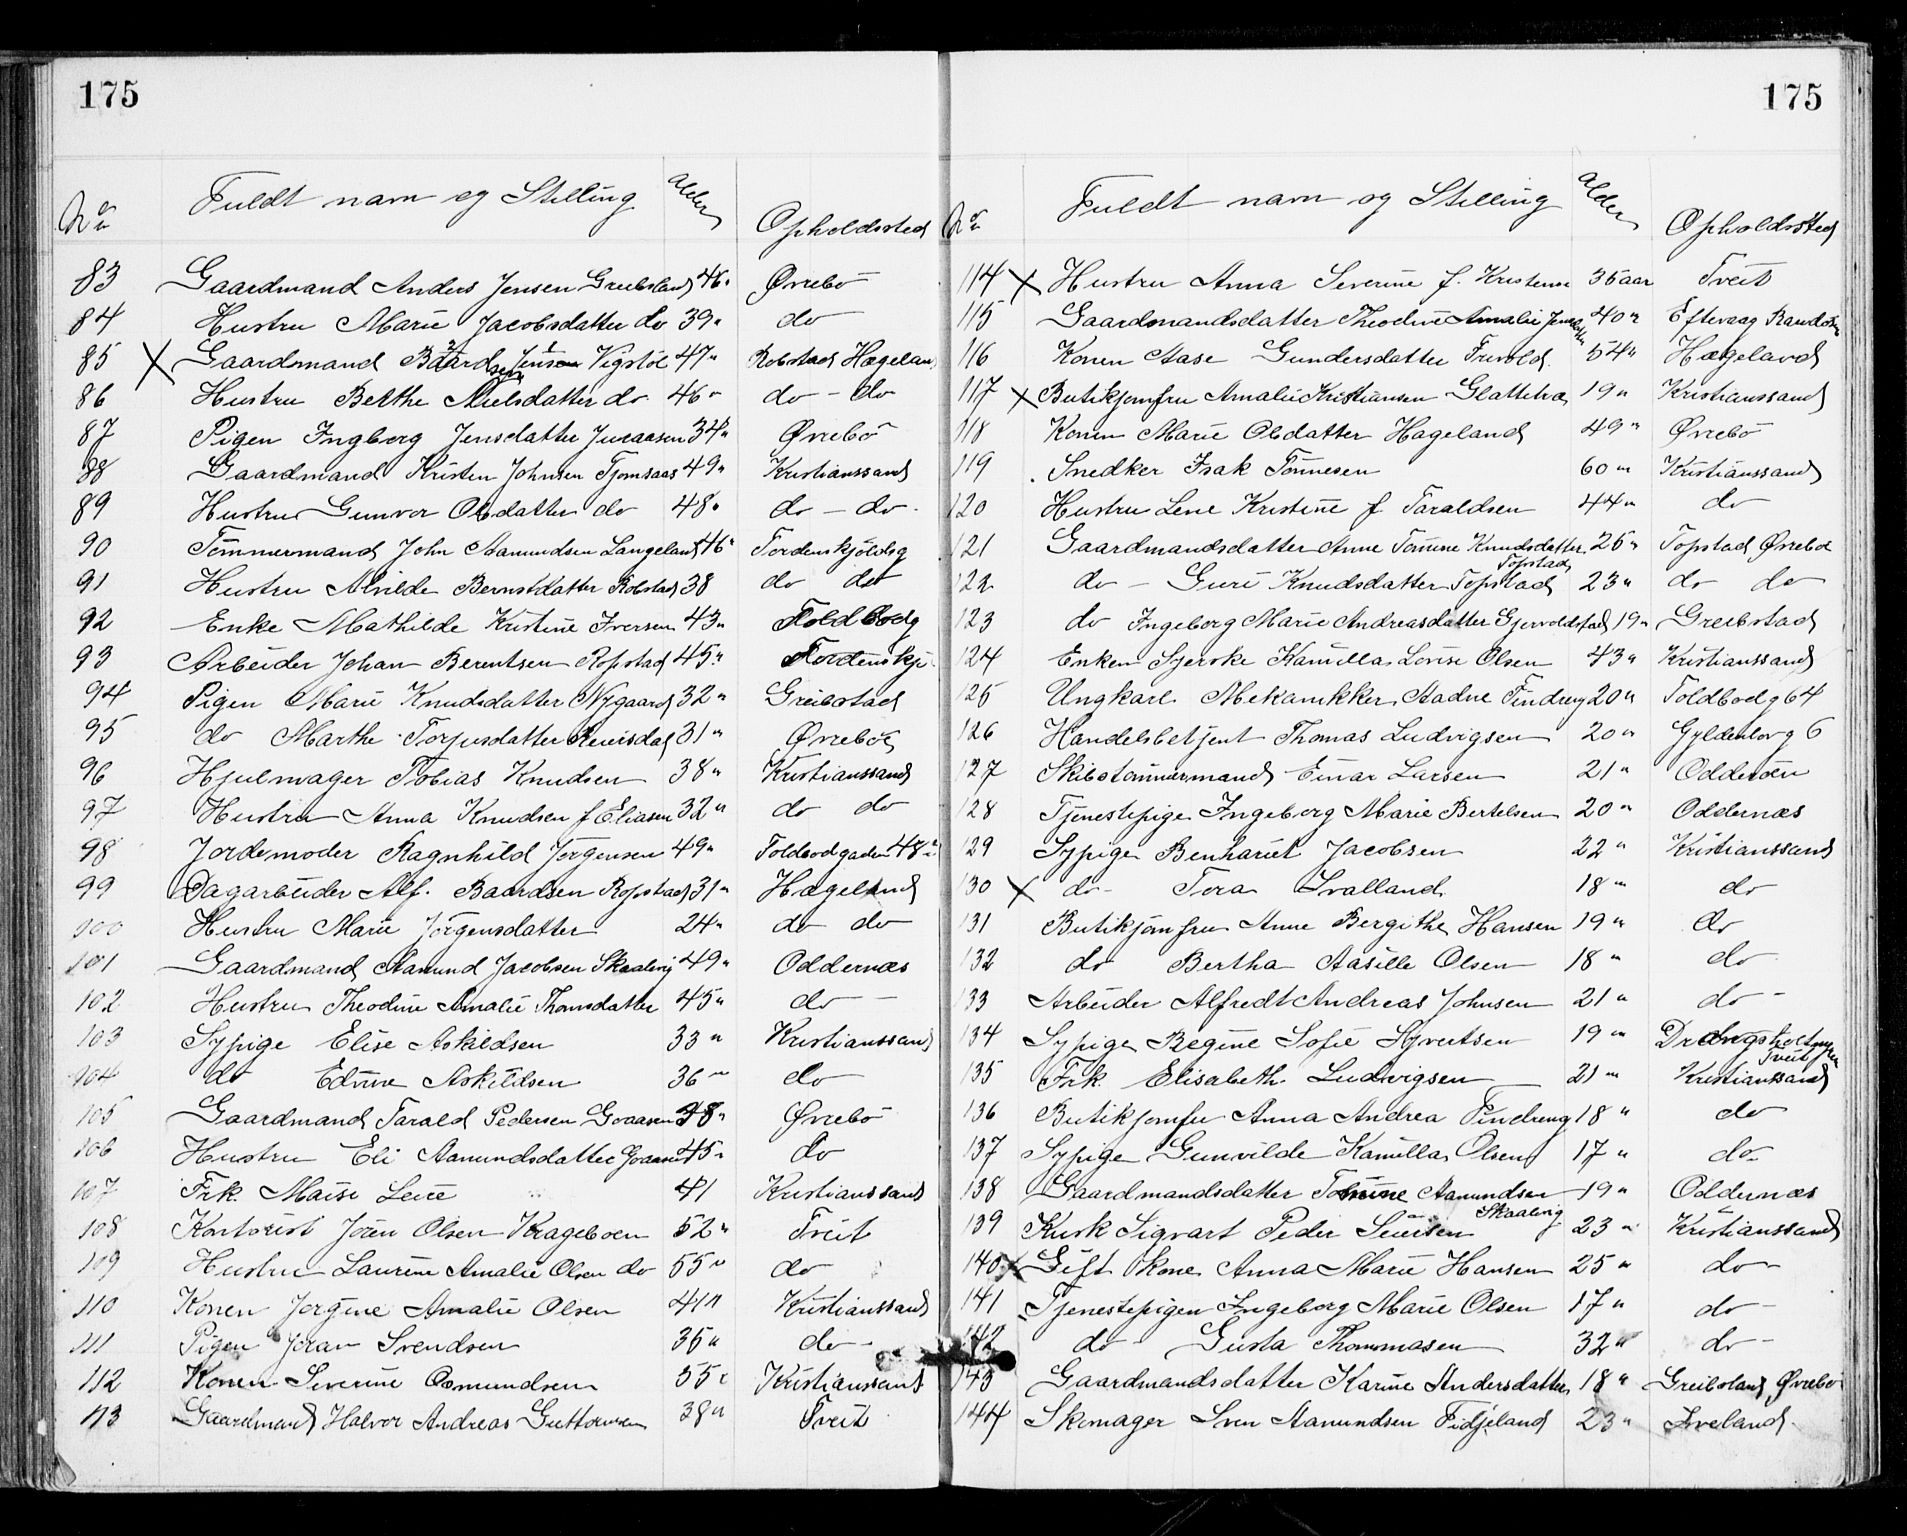 175
No Fuldt navn og Stilling Alder Opholdssted
83 Gaardmand Anders Jensen Greibsland 46 " Øvrebø
84 Hustru Marie Jacobsdatter do 39 " do
85 X Gaardsmand Baardsen Jens Vigstøl 47 " Robstad Hægeland
86 Hustru Berthe Nielsdatter do 46 " do - do
87 Pigen Ingborg Jensdatter 34 " Øvrebø
88 Gaardmand Kristen Johnsen Tjomsaas 49 " Kristianssand
89 Hustru Gunvor Olsdatter do 48 " do - do
90 Tømmermand John Aamundsen Langeland 46 " Tordenskjoldsg
91 Hustru Alvilde Berntsdatter Robstad 38 do do
92 Enke Mathilde Kristine Iversen 43 " Toldbodg
93 Arbeider Johan Berentsen Ropstad 45 " Tordenskj
94 Pigen Marie Knudsdatter Nygaard 32 " Greibstad
95 do Marthe Torjusdatter Reiersdal 31 " Øvrebø
96 Hjulmager Tobias Knudsen 38 " Kristianssand
97 Hustru Anna Knudsen f Eliasen 32 " do do
98 Jordemoder Ragnhild Jørgensen 49 " Toldbodgaden 48
99 Dagarbeider Alf. Baardsen Ropstad 31 " Hægeland
100 Hustru Marie Jørgensdatter 24 " do do
101 Gaardmand Aamund Jacobsen Skaalevig 49 " Oddernæs
102 Hustru Theodine Amalie Thomsdatter 45 " do -
103 Sypige Elise Askildsen 33 " Kristianssand
104 do Edine Askildsen 36 " do
105 Gaardmand Tarald Pedersen Goaasen 48 " Øvrebø
106 Hustru Eli Aamundsdatter Goaasen 45 " do
107 Frk. Maise Leire 41 Kristianssand
108 Kontorist Jøren Olsen Krageboen 52 " Tveit
109 Hustru Laurine Amalie Olsen do 55 " do
110 Konen Jørgine Amalie Olsen 41 " Kristianssand
111 Pigen Joran Svendsen 35 " do
112 Konen Severine Osmundsen 55 " Kristianssand
113 Gaardmand Halvor Andreas Guttormsen 38 " Tveit
175
No Fuldt navn og Stilling Alder Opholdssted
114 X Hustru Anna Severine f. Kristense 35 aar Tveit
115 Gaardmandsdatter Theodine Amalie 40 " Eftevaag Randøsund
116 Konen Aase Gundersdatter Frivold 54 " Hægeland
117 X Butikjomfru Amalie Kristiansen Glattetræ 19 " Kristianssand
118 Konen Marie Olsdatter Hageland 49 " Øvrebø
119 Snedker Isak Tønnesen 60 " Kristianssand
120 Hustru Lene Kristine f Taraldsen 44 " do
121 Gaardmandsdatter Anne Tomine Knudsdatter Topstad 25 " Topstad Øvrebø
122 do - Guri Knudsdatter Topstad 23 " do do
123 do Ingeborg Marie Andreasdatter Gjervoldstad 19 " Greibstad
124 Enken Syerske Kamilla Lovise Olsen 43 " Kristianssand
125 Ungkarl Mekanikker Aadne Findreng 20 " Toldbodg 64
126 Handelsbetjent Thomas Ludvigsen 20 " Gyldenlovg 6
127 Skibstømmermand Einar Larsen 21 " Odderøen
128 Tjenestepige Ingeborg Marie Bertelsen 20 " Oddernæs
129 Sypige Benhariet Jacobsen 22 " Kristianssand
130 X do - Tora Svalland 18 " do
131 Butikjomfru Anne Bergithe Hansen 19 " do
132 do Bertha Aasille Olsen 18 " do
133 Arbeider Alfredt Andreas Johnsen 21 " do -
134 Sypige Regine Sofie Syvertsen 19 " Drangsholt Tveit
135 Frk. Elisabeth Ludvigsen 21 " Kristianssand
136 Butikjomfru Anna Andrea Findreng 18 " do
137 Sypige Gunvilde Kamilla Olsen 17 " do
138 Gaardmandsdatter Tomine Aamundsen Skaalevig 19 " Oddernæs
139 Kusk Sigvart Peder Seiersen 23 " Kristianssand
140 X Gift Kone Anna Marie Hansen 25 " do
141 Tjenestepigen Ingeborg Marie Olsen 17 " do -
142 do - Gusta Thommasen 32 " do -
143 Gaardmandsdatter Karine Andersdatter 18 " Greibsland Øvrebø
144 Skomager Sven Aamundsen Fidjeland 23 " Iveland